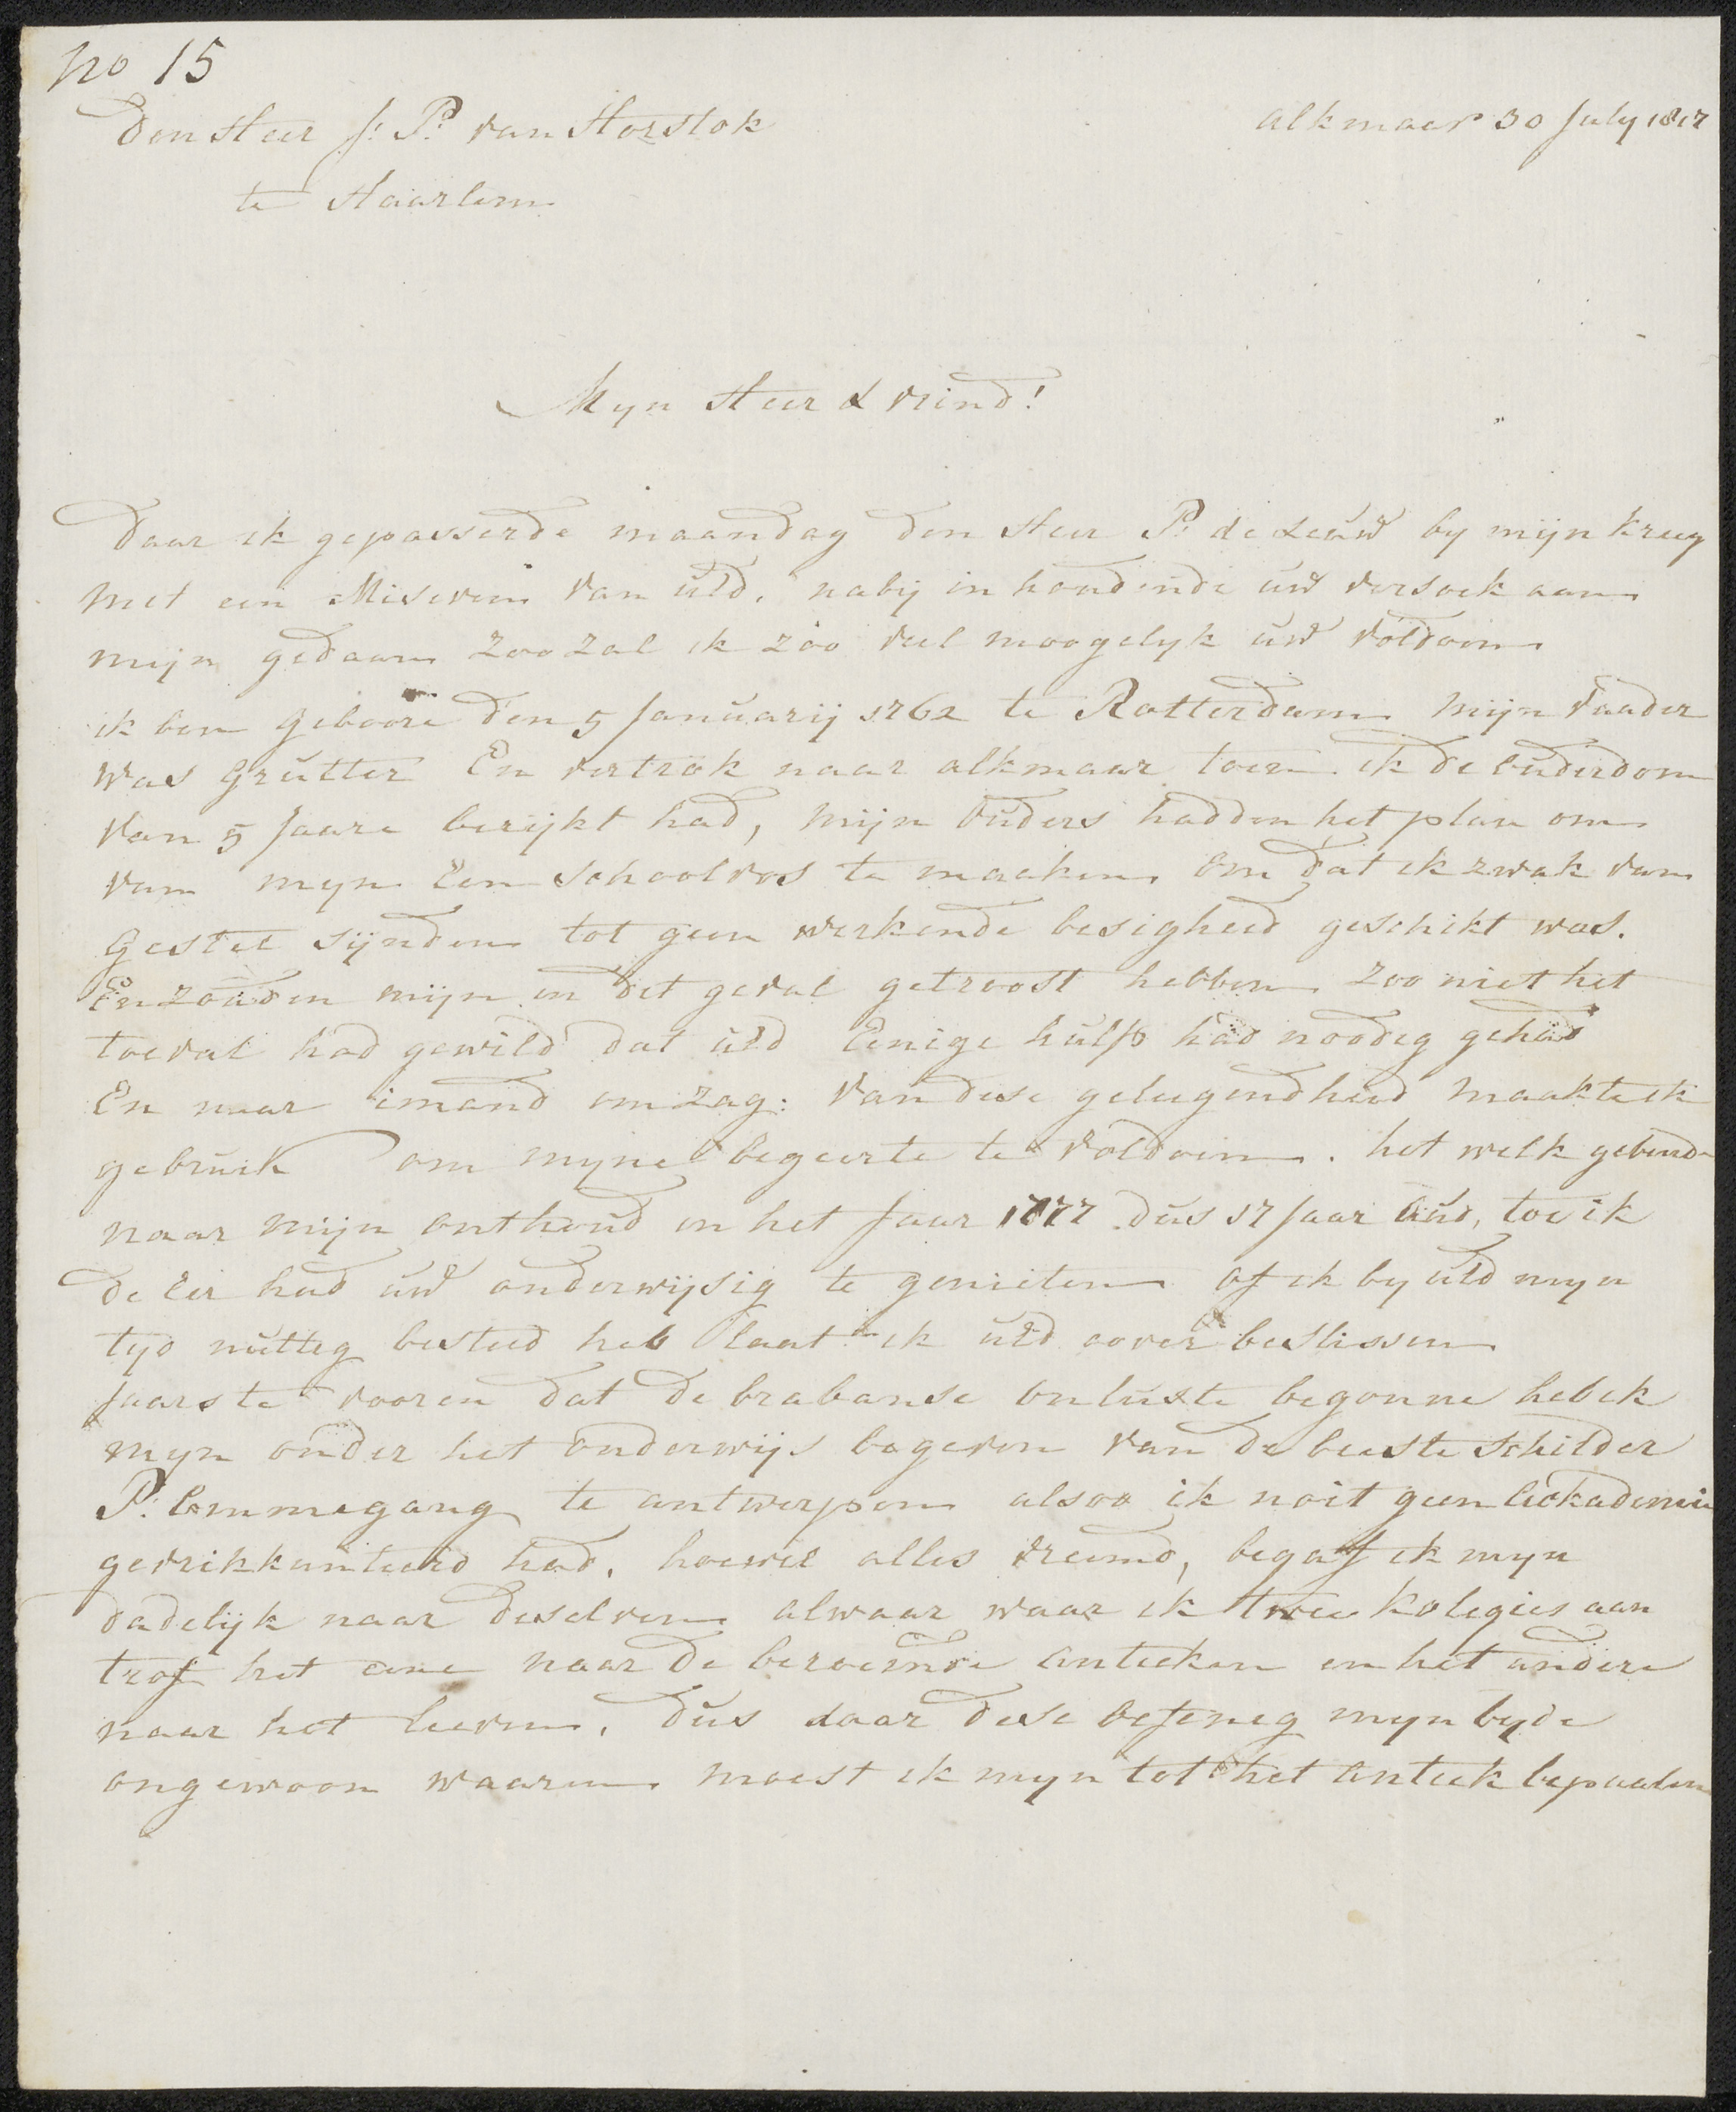 no 15
Den Heer J: P: van Horstok
alkmaar 30 July 1817
te Haarlem
Myn Heer & vrind!
Daar ik gepasserde maandag den Heer P: de Leuw by mijn kreeg
met een Miseven van uEd. naby in houdende uw versoek aan
mijn gedaan zoo zal ik zoo veel moogelyk uw voldoen
ik ben geboore den 5 Januarij 1762 te Rotterdam mijn Vaader
was Grutter En vertrok naar alkmaar toen ik de ouderdom
van 5 Jaare berijkt had, mijn Ouders hadden het plan om
van myn Een schoolvos te maaken om dat ik zwak van
gestel sijnden tot geen werkende besigheid geschikt was.
En zouden mijn in dit geval getroost hebben zoo niet het
toeval had gewild dat uEd Eenige hulp had noodig gehad
En naar imand om zag: van dese geleegendheid maakte ik
gebruik om myne begeerte te voldoen. het welk gebeurd
naar mijn onthoud in het Jaar 1777 dus 17 Jaar oud, toe ik
de Eer had uw onderwijsig te genieten of ik by uEd myn
tyd nutteg besteed heb laat ik uEd oover beslissen
Jaars te vooren dat de brabanse onluste begonne heb ik
myn onder het onderwijs begeven van de beeste schilder
P: Ommegang te antwerpen alsoo ik noit geen Ackademie
gevrikkunteerd had, hoewel alles vreemd, begaf ik myn
dadelijk naar deselven alwaar waar ik twee kolegies aan
trof het eene naar de beroemde antieken en het andere
naar het leeven, dus daar dese befeneg myn byde
ongewoon waaren moest ik myn tot het antiek bepaalen